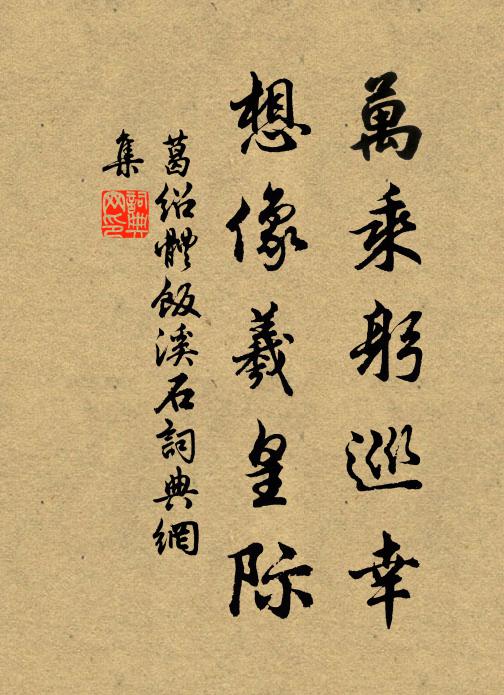 萬乘躬巡幸
想像羲皇际
葛紹體飯溪石詞典網
集
詞典網印